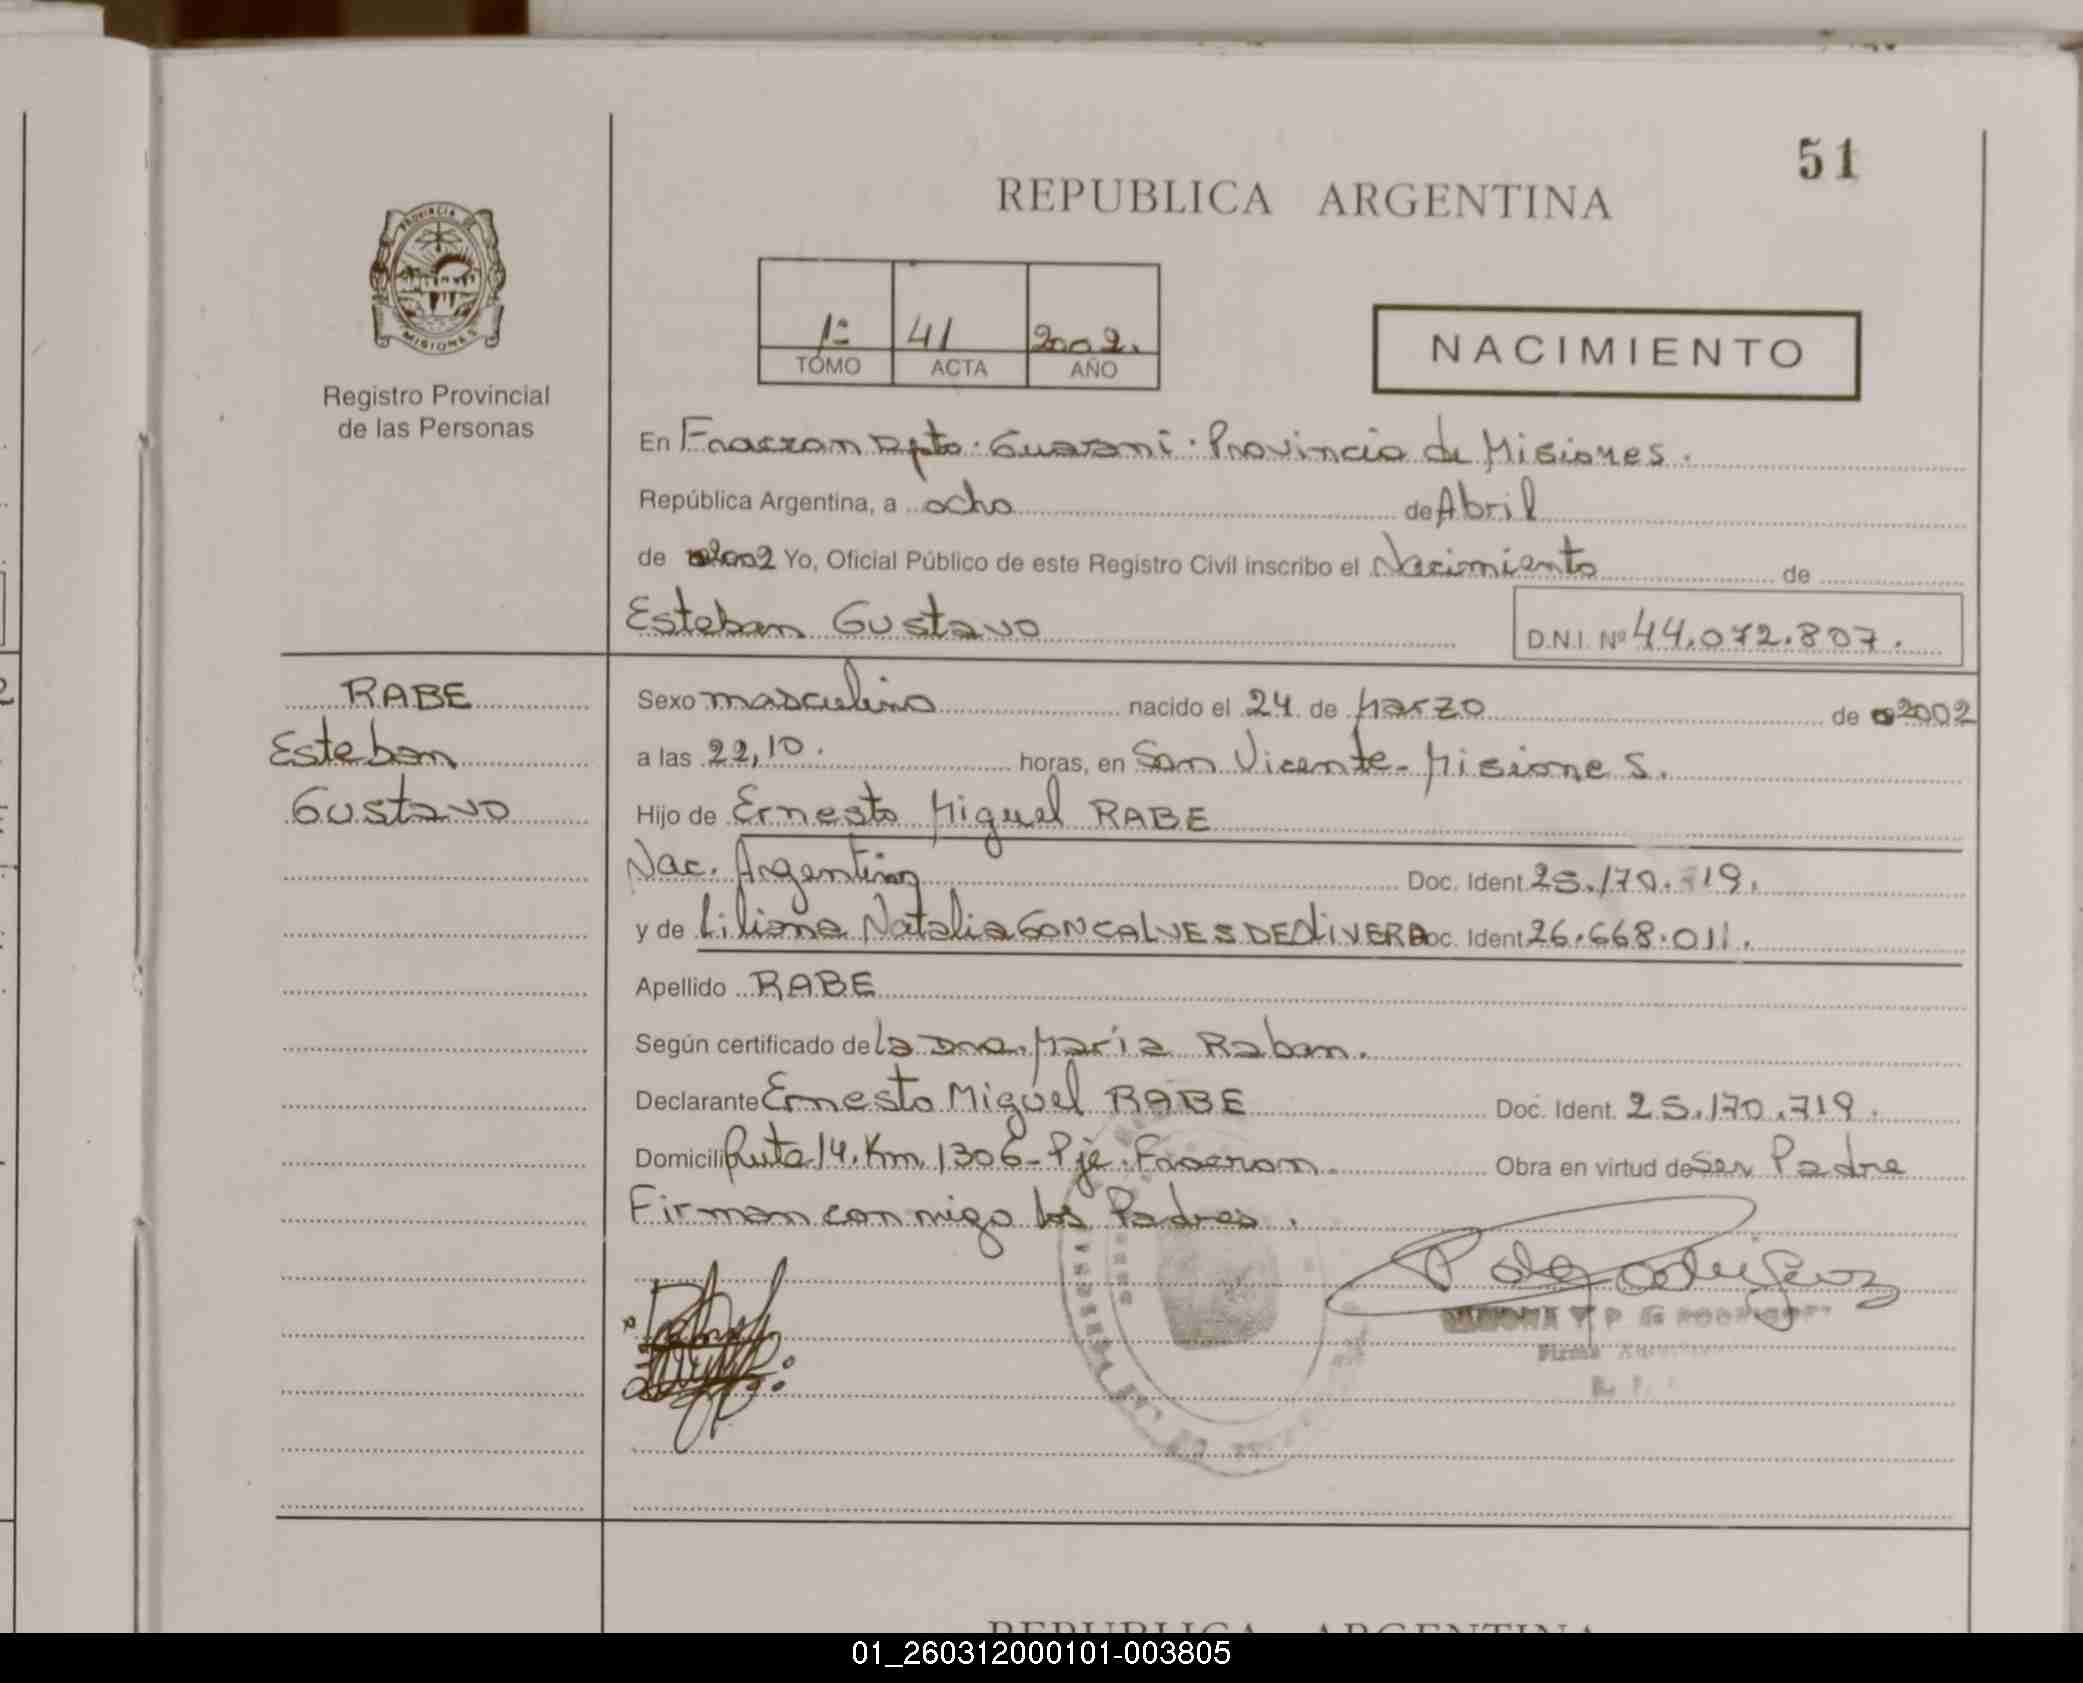 51
REPUBLICA ARGENTINA
PROVINCIA DE
MISIONES
Registro Provincial
de las Personas
1º 41 2002.
TOMO ACTA AÑO
NACIMIENTO
En Fracran Dpto. Guarani. Provincia de Misiones.
República Argentina, a ocho de Abril
de 2002 Yo, Oficial Público de este Registro Civil inscribo el Nacimiento de
Esteban Gustavo D.N.I. Nº 44.072.807.
RABE
Esteban
Gustavo
Sexo masculino nacido el 24 de Marzo de 2002
a las 22,10. horas, en San Vicente - Misiones.
Hijo de Ernesto Miguel RABE
Nac. Argentina Doc. Ident. 25.170.719.
y de Liliana Natalia GONCALVES DE OLIVERA Doc. Ident. 26.668.011.
Apellido RABE
Según certificado de la Dra. Maria Raban.
Declarante Ernesto Miguel RABE Doc. Ident. 25.170.719.
Domicili Ruta 14. Km. 1306 - Pje. Fracran. Obra en virtud de Ser Padre
Firman conmigo los Padres.
Firma
REPUBLICA ARGENTINA
01_260312000101-003805